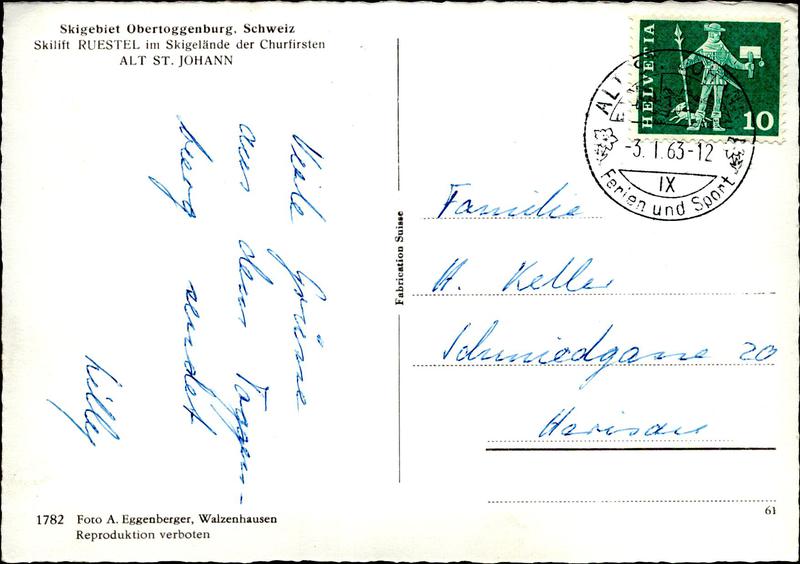 Skigebiet Obertoggenburg, Schweiz
Skilift RUESTEL im Skigelände der Churfirsten
ALT ST. JOHANN
Viele Grüsse
aus dem Toggen-
burg sendet
Willy
1782 Foto A. Eggenberger, Walzenhausen
Reproduktion verboten
Fabrication Suisse
HELVETIA
10
ALT
-3. I. 63-12
IX
Ferien und Sport
Familie
H. Keller
Schmiedgasse 20
Herisau
61